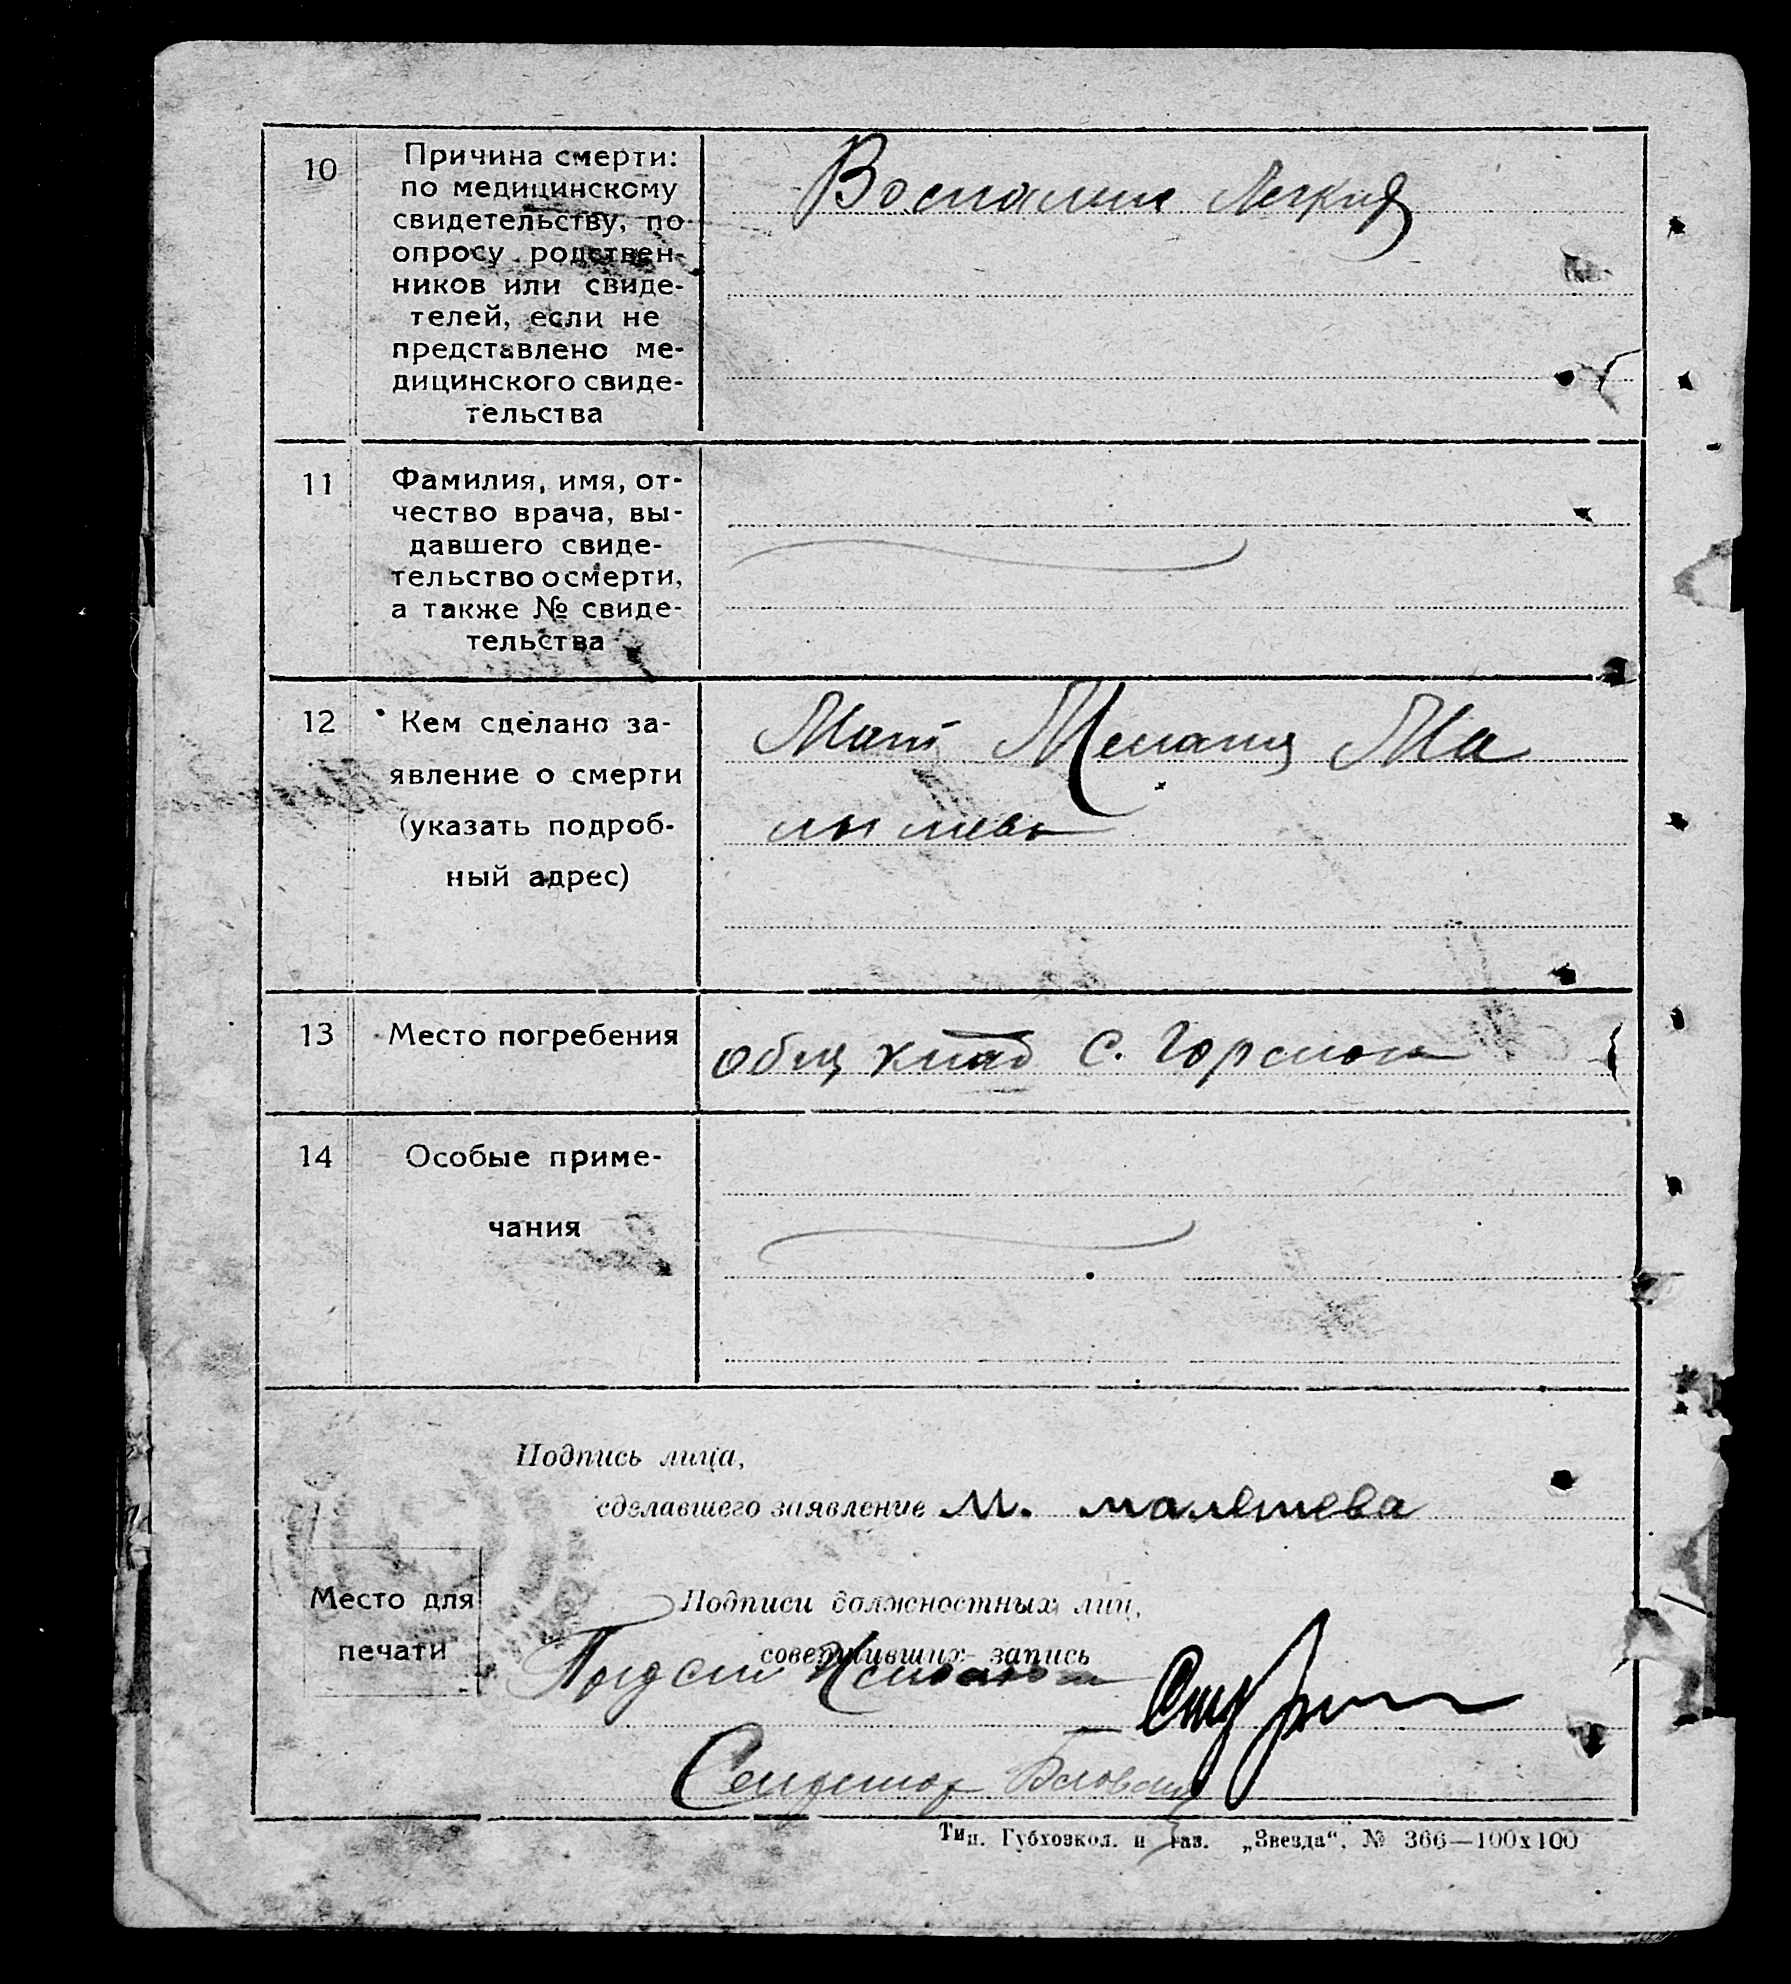 10
Причина смерти:
по медицинскому
свидетельству, по
опросу родствен-
ников или свиде-
телей, если не
представлено ме-
дицинского свиде-
тельства
Воспаление Легких
11
Фамилия, имя, от-
чество врача, вы-
давшего свиде-
тельство о смерти,
а также № свиде-
тельства
12
Кем сделано за-
явление о смерти
(указать подроб-
ный адрес)
Мать Мелания Ма
13
Место погребения
общ клад с.
14
Особые приме-
чания
Подпись лица,
сделавшего заявление М. малышева
Место для
печати
Подписи должностных лиц,
совершивших запись
Тип. Губхозкол. и газ. „Звезда“. № 366—100x100